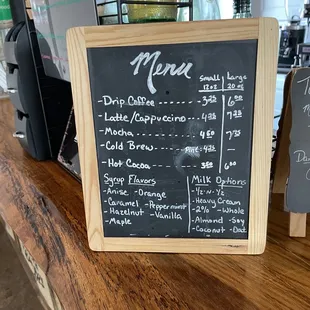 Menu
Small Large
12oz 20oz
-Drip Coffee ------ 3.25 6.00
-Latte/Cappuccino --- 7.25
-Mocha ------ 7.75
-Cold Brew
-Hot Cocoa ---- 6.00
Syrup Flavors
-Anise -Orange
-Caramel -Peppermint
-Hazelnut -Vanilla
-Maple
Milk Options
-½-N-½
-Heavy Cream
-2% -Whole
-Almond -Soy
-Coconut -Oat